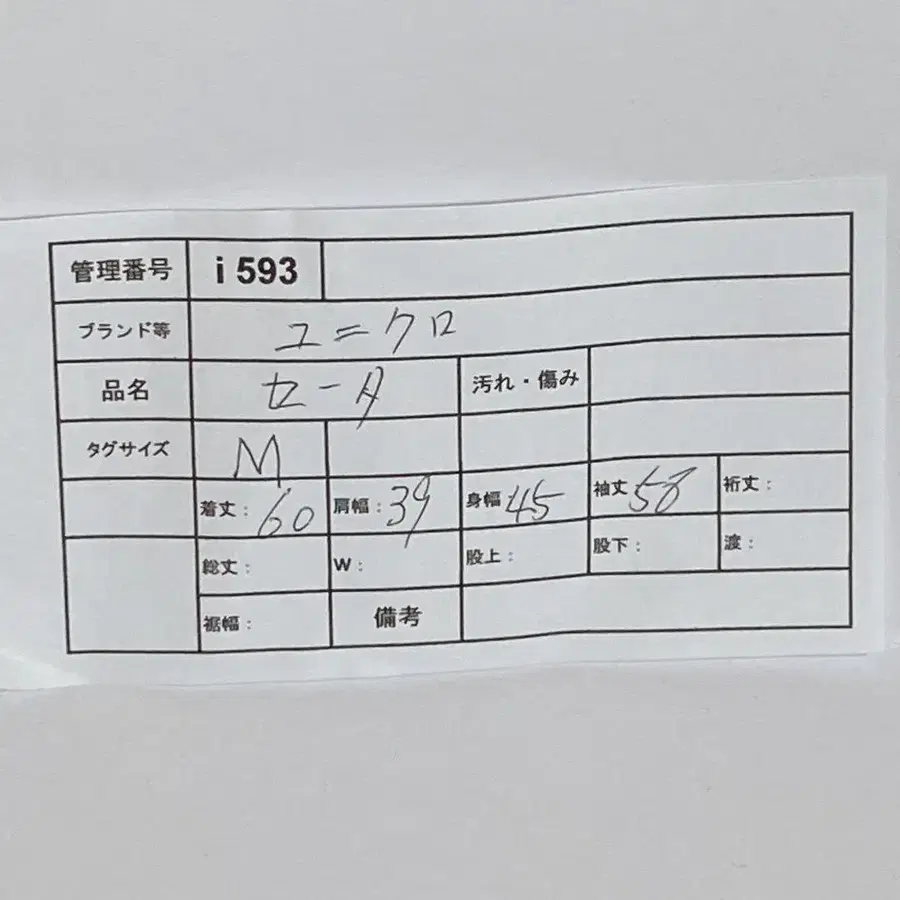 管理番号 i 593
ブランド等 ユニクロ
品名 セータ 汚れ・傷み
タグサイズ M
着丈: 60 肩幅: 39 身幅 45 袖丈 58 裄丈:
総丈: W: 股上: 股下: 渡:
裾幅: 備考